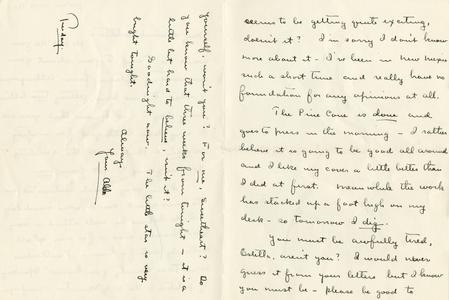 seems to be getting quite exciting,
doesn't it? I'm sorry I don't know
more about it - I've been in New Mexico
such a short time and really have no
foundation for any opinions at all.
The Pine Cone is done and
goes to press in the morning - I rather
believe it is going to be good all around
and I like my cover a little better than
I did at first. Meanwhile the work
has stacked up a foot high on my
desk - so tomorrow I dig.
You must be awfully tired,
Estella, aren't you? I would never
guess it from your letters but I know
you must be - please be good to
yourself, won't you? For me, Sweetheart? Do
you know that three weeks from tonight - it is a
little bit hard to believe, isn't it?
Goodnight now. The little star is very
bright tonight.
Always
Your Aldo